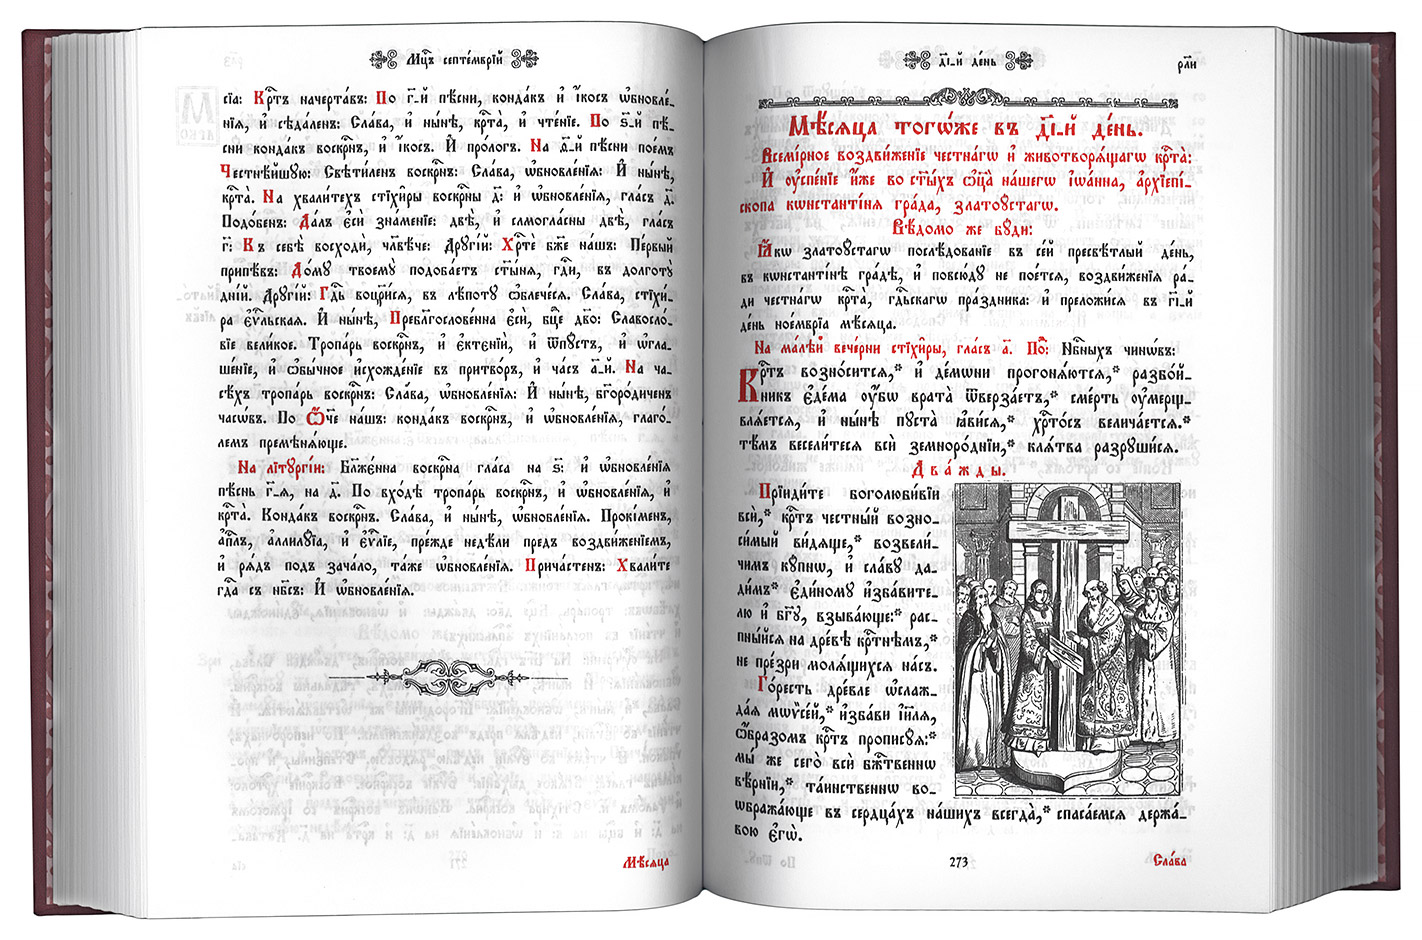 Мц҃ъ септе́мврїй
сїа: Крⷭ҇тъ начерта́въ: По г҃-й пѣ́сни, конда́къ и҆ і҆́косъ ѡ҆бновле́-
нїѧ, и҆ сѣда́ленъ: Сла́ва, и҆ ны́нѣ, крⷭ҇та̀, и҆ чте́нїе. По ѕ҃-й пѣ́-
сни конда́къ воскрⷭ҇нъ, и҆ і҆́косъ. И҆ проло́гъ. На д҃-й пѣ́сни пое́мъ
Честнѣ́йшую: Свѣти́ленъ воскрⷭ҇нъ: Сла́ва, ѡ҆бновле́нїѧ: И҆ ны́нѣ,
крⷭ҇та̀. На хвали́техъ стїхи̑ры воскрⷭ҇ны д҃: и҆ ѡ҆бновле́нїѧ, гла́съ д҃.
Подо́бенъ: Да́лъ є҆сѝ зна́менїе: двѣ̀, и҆ самогла́сны двѣ̀, гла́съ
г҃: Къ себѣ̀ восходѝ, чл҃вѣ́че: Дрꙋгі́й: Хрⷭ҇тѐ бж҃е на́шъ: Пе́рвый
припѣ́въ: До́мꙋ твоемꙋ̀ подоба́етъ ст҃ы́нѧ, гдⷭ҇и, въ долготꙋ̀
дні́й. Дрꙋгі́й: Гдⷭ҇ь воцр҃и́сѧ, въ лѣ́потꙋ ѡ҆блече́сѧ. Сла́ва, стїхи́-
ра є҆ѵⷢ҇льскаѧ. И҆ ны́нѣ, Пребл҃гослове́нна є҆сѝ, бц҃е дв҃о: Славосло́-
вїе вели́кое. Тропа́рь воскрⷭ҇нъ, и҆ є҆ктенїѝ, и҆ ѿпꙋ́стъ, и҆ ѡ҆гла-
ше́нїе, и҆ ѡ҆бы́чное и҆схожде́нїе въ притво́ръ, и҆ ча́съ а҃-й. На ча-
сѣ́хъ тропа́рь воскрⷭ҇нъ: Сла́ва, ѡ҆бновле́нїѧ: И҆ ны́нѣ, бг҃оро́диченъ
часѡ́въ. По Ѻ҆́ч҃е на́шъ: конда́къ воскрⷭ҇нъ, и҆ ѡ҆бновле́нїѧ, глаго́-
лемъ премѣнѧ́юще.
На лїтꙋргі́и: Бл҃жє́нна воскрⷭ҇на гла́са на ѕ҃: и҆ ѡ҆бновле́нїѧ
пѣ́снь г҃-ѧ, на д҃. По вхо́дѣ тропа́рь воскрⷭ҇нъ, и҆ ѡ҆бновле́нїѧ, и҆
крⷭ҇та̀. Конда́къ воскрⷭ҇нъ. Сла́ва, и҆ ны́нѣ, ѡ҆бновле́нїѧ. Прокі́менъ,
а҆пⷭ҇лъ, а҆ллилꙋ́їа, и҆ є҆ѵⷢ҇лїе, пре́жде недѣ́ли пред̾ воздви́женїемъ,
и҆ рѧ́дъ под̾ зача́ло, та́же ѡ҆бновле́нїѧ. Прича́стенъ: Хвали́те
гдⷭ҇а съ нб҃съ: И҆ ѡ҆бновле́нїѧ.
Мѣ́сѧца
д҃і-й де́нь
рл҃и
Мѣ́сѧца тогѡ́же въ д҃і-й де́нь.
Всемі́рное воздви́женїе честна́гѡ и҆ животворѧ́щагѡ крⷭ҇та̀:
И҆ ᲂу҆спе́нїе и҆́же во ст҃ы́хъ ѻ҆ц҃а̀ на́шегѡ і҆ѡа́нна, а҆рхїепі́-
скопа кѡнстантї́нѧ гра́да, златоꙋ́стагѡ.
Вѣ́домо же бꙋ́ди:
Ꙗ҆́кѡ златоꙋ́стагѡ послѣ́дованїе въ се́й пресвѣ́тлый де́нь,
въ кѡнстантї́нѣ гра́дѣ, и҆ повсю́дꙋ не пое́тсѧ, воздви́женїѧ ра́-
ди честна́гѡ крⷭ҇та̀, гдⷭ҇ьскагѡ пра́здника: и҆ преложи́сѧ въ г҃і-й
де́нь ное́мврїа мѣ́сѧца.
На ма́лѣй вече́рни стїхи̑ры, гла́съ а҃. Поⷣ: Нбⷭ҇ныхъ чинѡ́въ:
Крⷭ҇тъ возно́ситсѧ,* и҆ де́мѡни прогонѧ́ютсѧ,* разбо́й-
никъ є҆де́ма ᲂу҆́бѡ врата̀ ѿверза́етъ,* сме́рть ᲂу҆мерщ-
влѧ́етсѧ, и҆ ны́нѣ пꙋста̀ ꙗ҆ви́сѧ,* хрⷭ҇то́съ велича́етсѧ.*
тѣ́мъ весели́тесѧ всѝ земноро́днїи,* клѧ́тва разрꙋши́сѧ.
Два́жды.
Прїиди́те боголюби́вїи
всѝ,* крⷭ҇тъ честны́й возно-
си́мый ви́дѧще,* возвели́-
чимъ кꙋ́пнѡ, и҆ сла́вꙋ да-
ди́мъ* є҆ди́номꙋ и҆зба́вите-
лю и҆ бг҃ꙋ, взыва́юще:* рас-
пны́йсѧ на дре́вѣ крⷭ҇тнѣмъ,*
не пре́зри молѧ́щихсѧ на́съ.
Го́ресть дре́вле ѡ҆слаж-
да́ѧ мѡѷсе́й,* и҆зба́ви і҆и҃лѧ,
ѻ҆́бразомъ крⷭ҇тъ пропи́сꙋѧ:*
мы́ же сего̀ всѝ бж҃твеннѡ
вѣ́рнїи,* та́инственнѡ во-
ѡбража́юще въ сердца́хъ на́шихъ всегда̀,* спаса́емсѧ держа́-
вою є҆гѡ̀.
273
Сла́ва